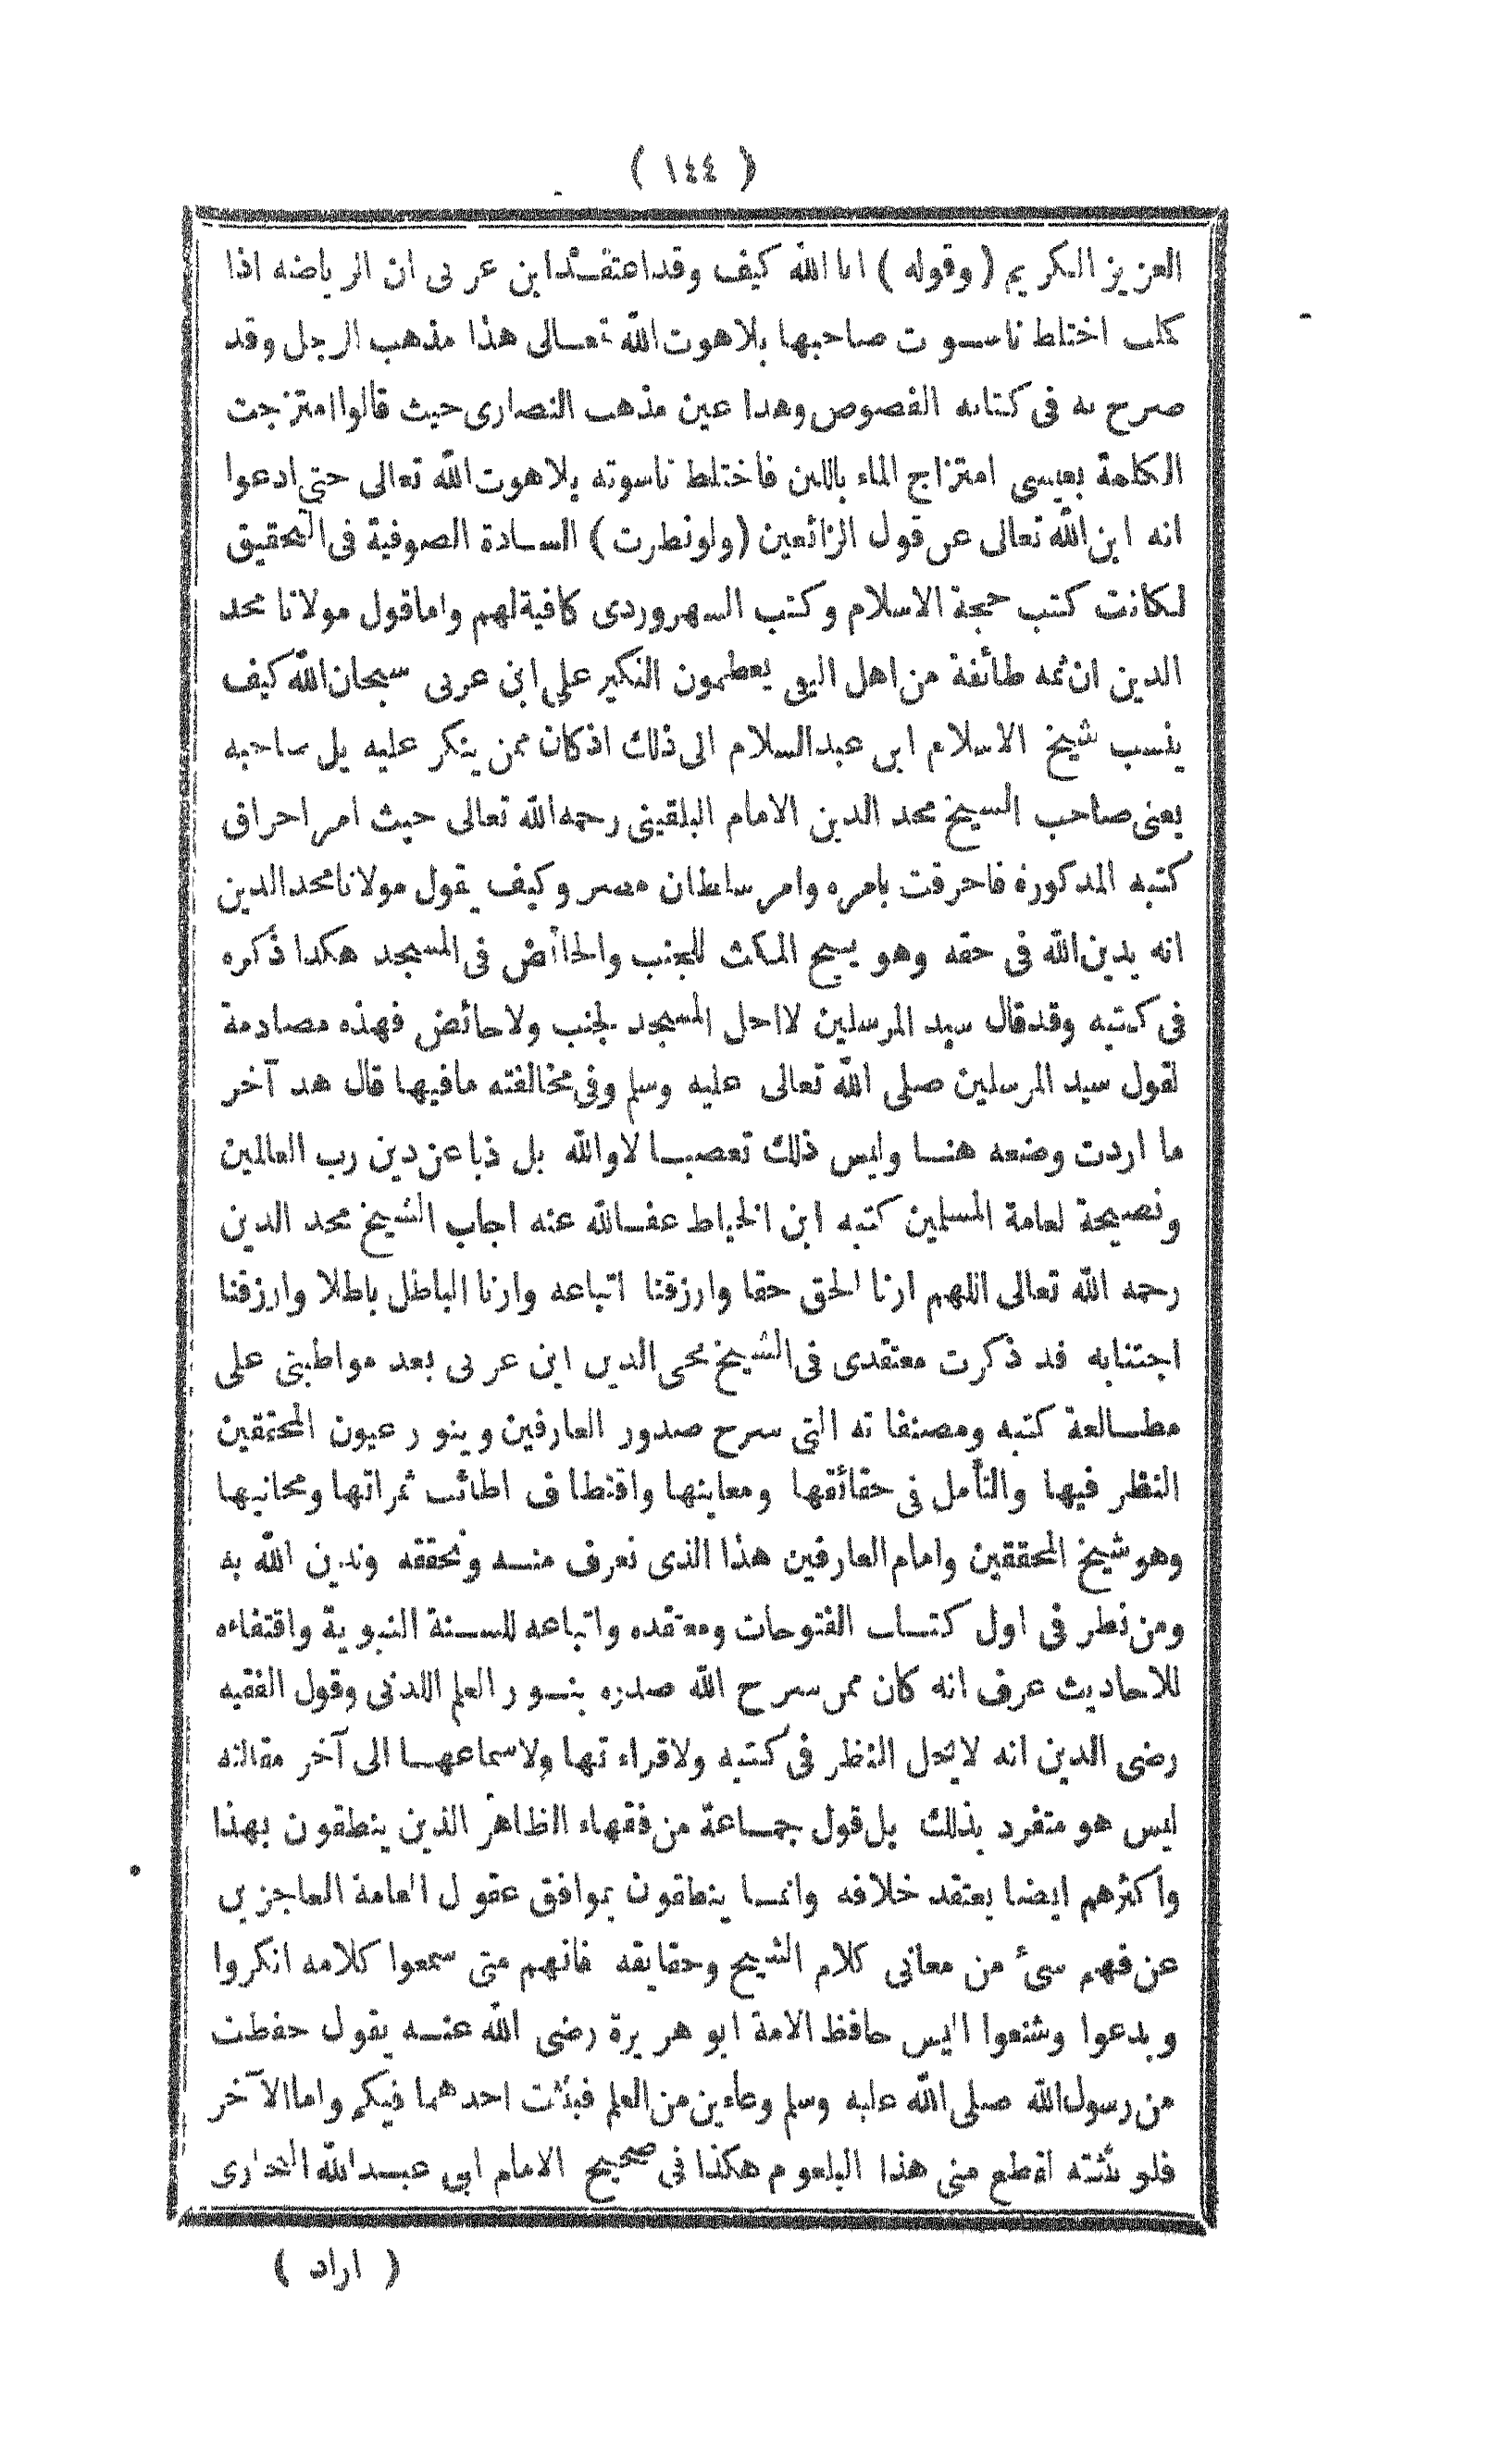 ( ١٤٤ )
العزيز الكريم ( وقوله ) انا الله كيف وقد اعتقد ابن عربى ان الرياضه اذا
كملت اختلط ناسوت صاحبها بلاهوت الله تعالى هذا مذهب الرجل وقد
صرح به فى كتابه الفصوص وهذا عين مذهب النصارى حيث قالوا امتزجت
الكلمة بعيسى امتزاج الماء باللبن فاختلط ناسوته بلاهوت الله تعالى حتى ادعوا
انه ابن الله تعالى عن قول الزائعين ( ولو نظرت ) السادة الصوفية فى التحقيق
لكانت كتب حجة الاسلام وكتب السهروردى كافية لهم واما قول مولانا مجد
الدين ان ثمه طائفة من اهل اليمن يعظمون النكير على ابن عربى سبحان الله كيف
ينسب شيخ الاسلام ابن عبد السلام الى ذلك اذ كان ممن ينكر عليه بل صاحبه
يعنى صاحب الشيخ مجد الدين الامام البلقينى رحمه الله تعالى حيث امر احراق
كتبه المذكورة فاحرقت بامره وامر سلطان مصر وكيف يقول مولانا مجد الدين
انه يدين الله فى حقه وهو يبيح المكث للجنب والحائض فى المسجد هكذا ذكره
فى كتبه وقد قال سيد المرسلين لا احل المسجد لجنب ولا حائض فهذه مصادمة
لقول سيد المرسلين صلى الله تعالى عليه وسلم وفى مخالفته مافيها قال هذ آخر
ما اردت وضعه هنا وليس ذلك تعصبا لا والله بل ذبا عن دين رب العالمين
ونصيحة لعامة المسلمين كتبه ابن الخياط عفا الله عنه اجاب الشيخ مجد الدين
رحمه الله تعالى اللهم ارنا الحق حقا وارزقنا اتباعه وارنا الباطل باطلا وارزقنا
اجتنابه قد ذكرت معتقدى فى الشيخ محى الدين ابن عربى بعد مواظبتى على
مطالعة كتبه ومصنفاته التى شرح صدور العارفين وينور عيون المحققين
النظر فيها والتأمل فى حقائقها ومعاينها واقتطاف اطائب ثمراتها ومجانيها
وهو شيخ المحققين وامام العارفين هذا الذى نعرف منه ونحققه وندين الله به
ومن نظر فى اول كتاب الفتوحات ومعتقده واتباعه للسنة النبوية واقتفاءه
للاحاديث عرف انه كان ممن شرح الله صدره بنور العلم اللدنى وقول الفقيه
رضى الدين انه لا يحل النظر فى كتبه ولا قراءتها ولا سماعها الى آخر مقالته
ليس هو متفرد بذلك بل قول جماعة من فقهاء الظاهر الذين ينطقون بهذا
واكثرهم ايضا يعتقد خلافه وانما ينطقون بموافق عقول العامة العاجزين
عن فهم شىء من معانى كلام الشيخ وحقايقه فانهم متى سمعوا كلامه انكروا
وبدعوا وشنعوا اليس حافظ الامة ابو هريرة رضى الله عنه يقول حفظت
من رسول الله صلى الله عليه وسلم وعاءين من العلم فبثثت احدهما فيكم واما الآخر
فلو بثثته لقطع منى هذا البلعوم هكذا فى صحيح الامام ابى عبد الله البخارى
( اراد )